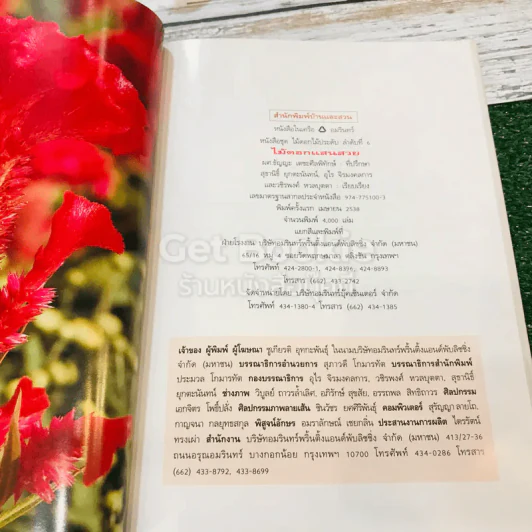 สำนักพิมพ์บ้านและสวน
หนังสือในเครือ อมรินทร์
หนังสือชุด ไม้ดอกไม้ประดับ ลำดับที่ 6
ไม้ดอกแสนสวย
ผศ.ธัญญะ เตชะศีลพิทักษ์ : ที่ปรึกษา
สุธานิธิ์ ยุกตะนันทน์, อุไร จิรมงคลการ
และวชิรพงศ์ หวลบุตตา : เรียบเรียง
เลขมาตรฐานสากลประจำหนังสือ 974-775100-3
พิมพ์ครั้งแรก เมษายน 2538
จำนวนพิมพ์ 4,000 เล่ม
แยกสีและพิมพ์ที่
ฝ่ายโรงงาน บริษัทอมรินทร์พริ้นติ้งแอนด์พับลิชชิ่ง จำกัด (มหาชน)
65/16 หมู่ 4 ซอยวัดพฤกษมาลา ตลิ่งชัน กรุงเทพฯ
โทรศัพท์ 424-2800-1, 424-8396, 424-8693
โทรสาร (662) 431-2742
จัดจำหน่ายโดย บริษัทอมรินทร์บุ๊คเซ็นเตอร์ จำกัด
โทรศัพท์ 434-1380-4 โทรสาร (662) 434-1385
Get Book
ร้านหนัง
เจ้าของ ผู้พิมพ์ ผู้โฆษณา ชูเกียรติ อุทกะพันธุ์ ในนามบริษัทอมรินทร์พริ้นติ้งแอนด์พับลิชชิ่ง
จำกัด (มหาชน) บรรณาธิการอำนวยการ สุภาวดี โกมารทัต บรรณาธิการสำนักพิมพ์
ประมวล โกมารทัต กองบรรณาธิการ อุไร จิรมงคลการ, วชิรพงศ์ หวลบุตตา, สุธานิธิ์
ยุกตะนันทน์ ช่างภาพ วิบูลย์ ถาวรล้ำเลิศ, อภิรักษ์ สุขสัย, อรรถพล สิทธิถาวร ศิลปกรรม
เอกจิตร โพธิ์ปลั่ง ศิลปกรรมภาพลายเส้น ชินวัชร ยศศิริพันธุ์ คอมพิวเตอร์ สุรัญญา ลายโถ,
กาญจนา กลยุทธสกุล พิสูจน์อักษร อมราลักษณ์ เชยกลิ่น ประสานงานการผลิต ไตรรัตน์
ทรงเผ่า สำนักงาน บริษัทอมรินทร์พริ้นติ้งแอนด์พับลิชชิ่ง จำกัด (มหาชน) 413/27-36
ถนนอรุณอมรินทร์ บางกอกน้อย กรุงเทพฯ 10700 โทรศัพท์ 434-0286 โทรสาร
(662) 433-8792, 433-8699